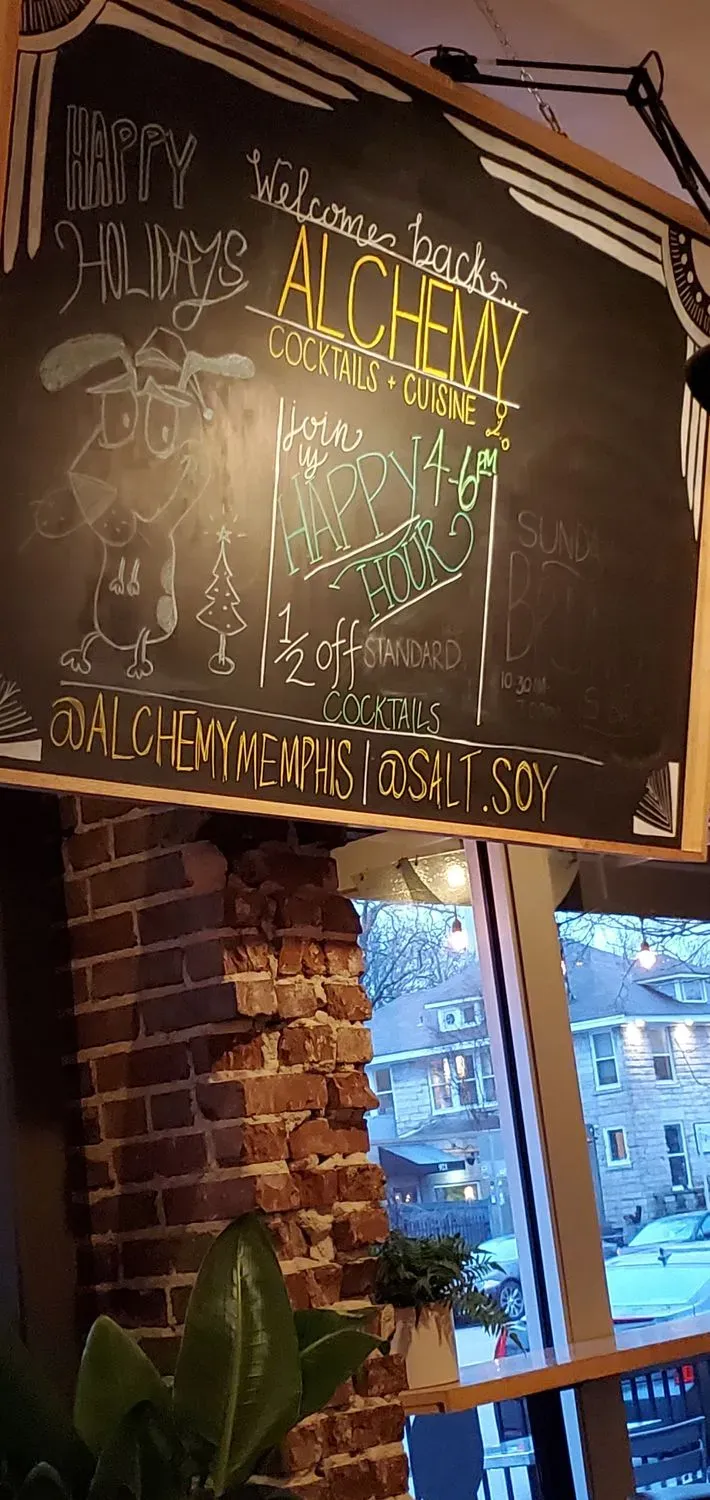 HAPPY
HOLIDAYS
Welcome back...
ALCHEMY
COCKTAILS + CUISINE
join
us
HAPPY 4-6PM
HOUR
1/2 off STANDARD
COCKTAILS
10:30
@ALCHEMYMEMPHIS | @SALT.SOY